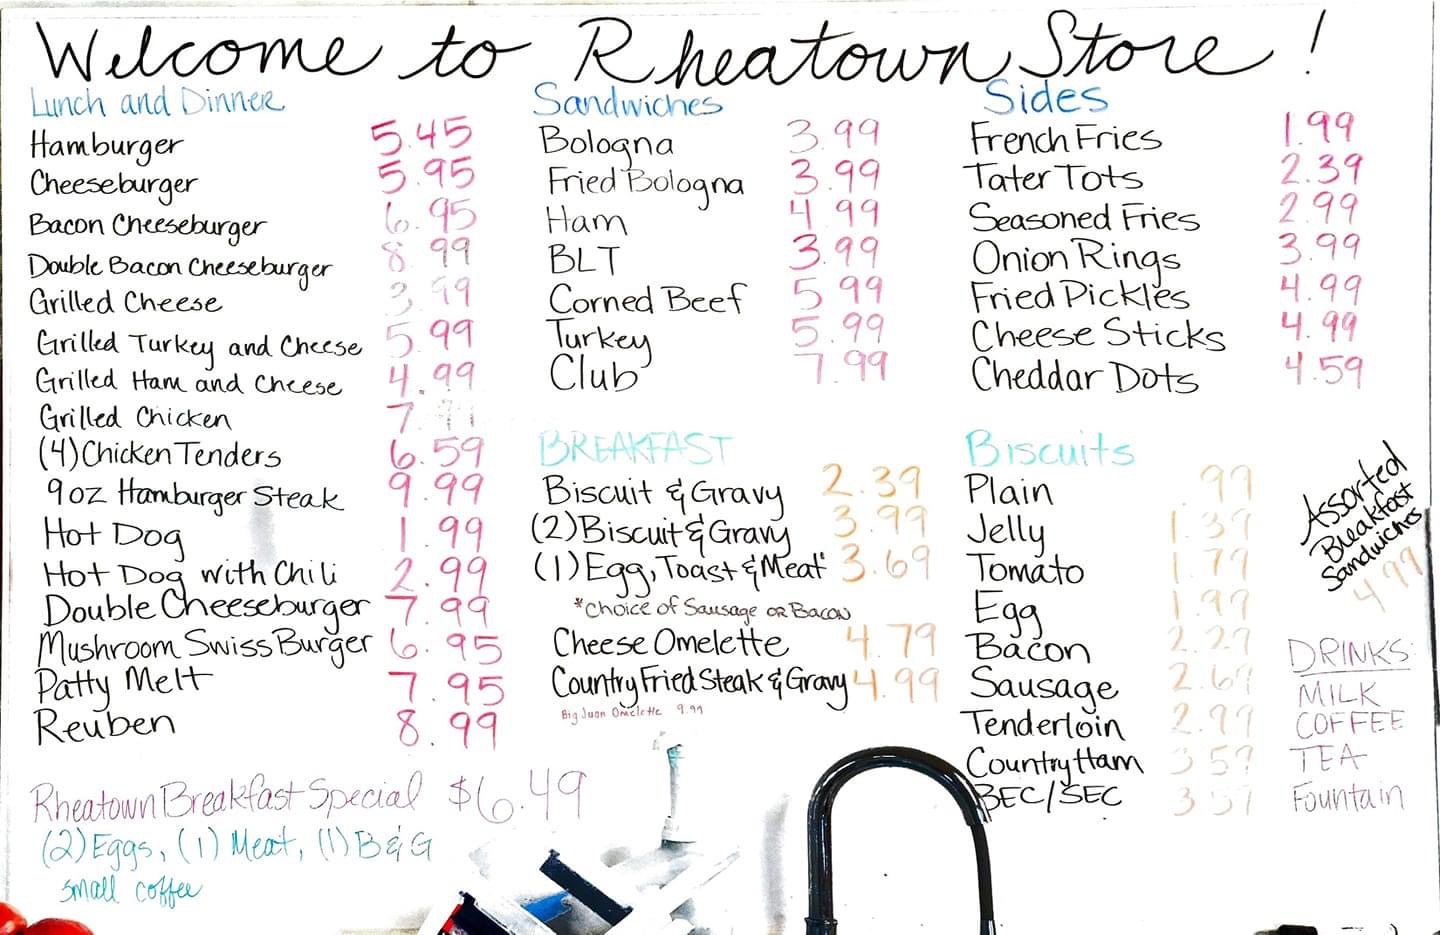 Welcome to Rheatown Store!
Lunch and Dinner
Hamburger 5.45
Cheeseburger 5.95
Bacon Cheeseburger 6.95
Double Bacon Cheeseburger 8.99
Grilled Cheese 3.99
Grilled Turkey and Cheese 5.99
Grilled Ham and Cheese 4.99
Grilled Chicken 7.99
(4) Chicken Tenders 6.59
9oz Hamburger Steak 9.99
Hot Dog 1.99
Hot Dog with Chili 2.99
Double Cheeseburger 7.99
Mushroom Swiss Burger 6.95
Patty Melt 7.95
Reuben 8.99
Rheatown Breakfast Special $6.49
(2) Eggs, (1) Meat, (1) B&G
small coffee
Sandwiches
Bologna 3.99
Fried Bologna 3.99
Ham 4.99
BLT 3.99
Corned Beef 5.99
Turkey 5.99
Club 7.99
BREAKFAST
Biscuit & Gravy 2.39
(2) Biscuit & Gravy 3.99
(1) Egg, Toast & Meat* 3.69
*Choice of Sausage or Bacon
Cheese Omelette 4.79
Country Fried Steak & Gravy 4.99
Big Juan Omelette 9.99
Sides
French Fries 1.99
Tater Tots 2.39
Seasoned Fries 2.99
Onion Rings 3.99
Fried Pickles 4.99
Cheese Sticks 4.99
Cheddar Dots 4.59
Biscuits
Plain .99
Jelly 1.39
Tomato 1.79
Egg 1.99
Bacon 2.29
Sausage 2.69
Tenderloin 2.99
Country Ham 3.59
BEC/SEC 3.59
Assorted
Breakfast
Sandwiches
4.99
DRINKS:
MILK
COFFEE
TEA
Fountain